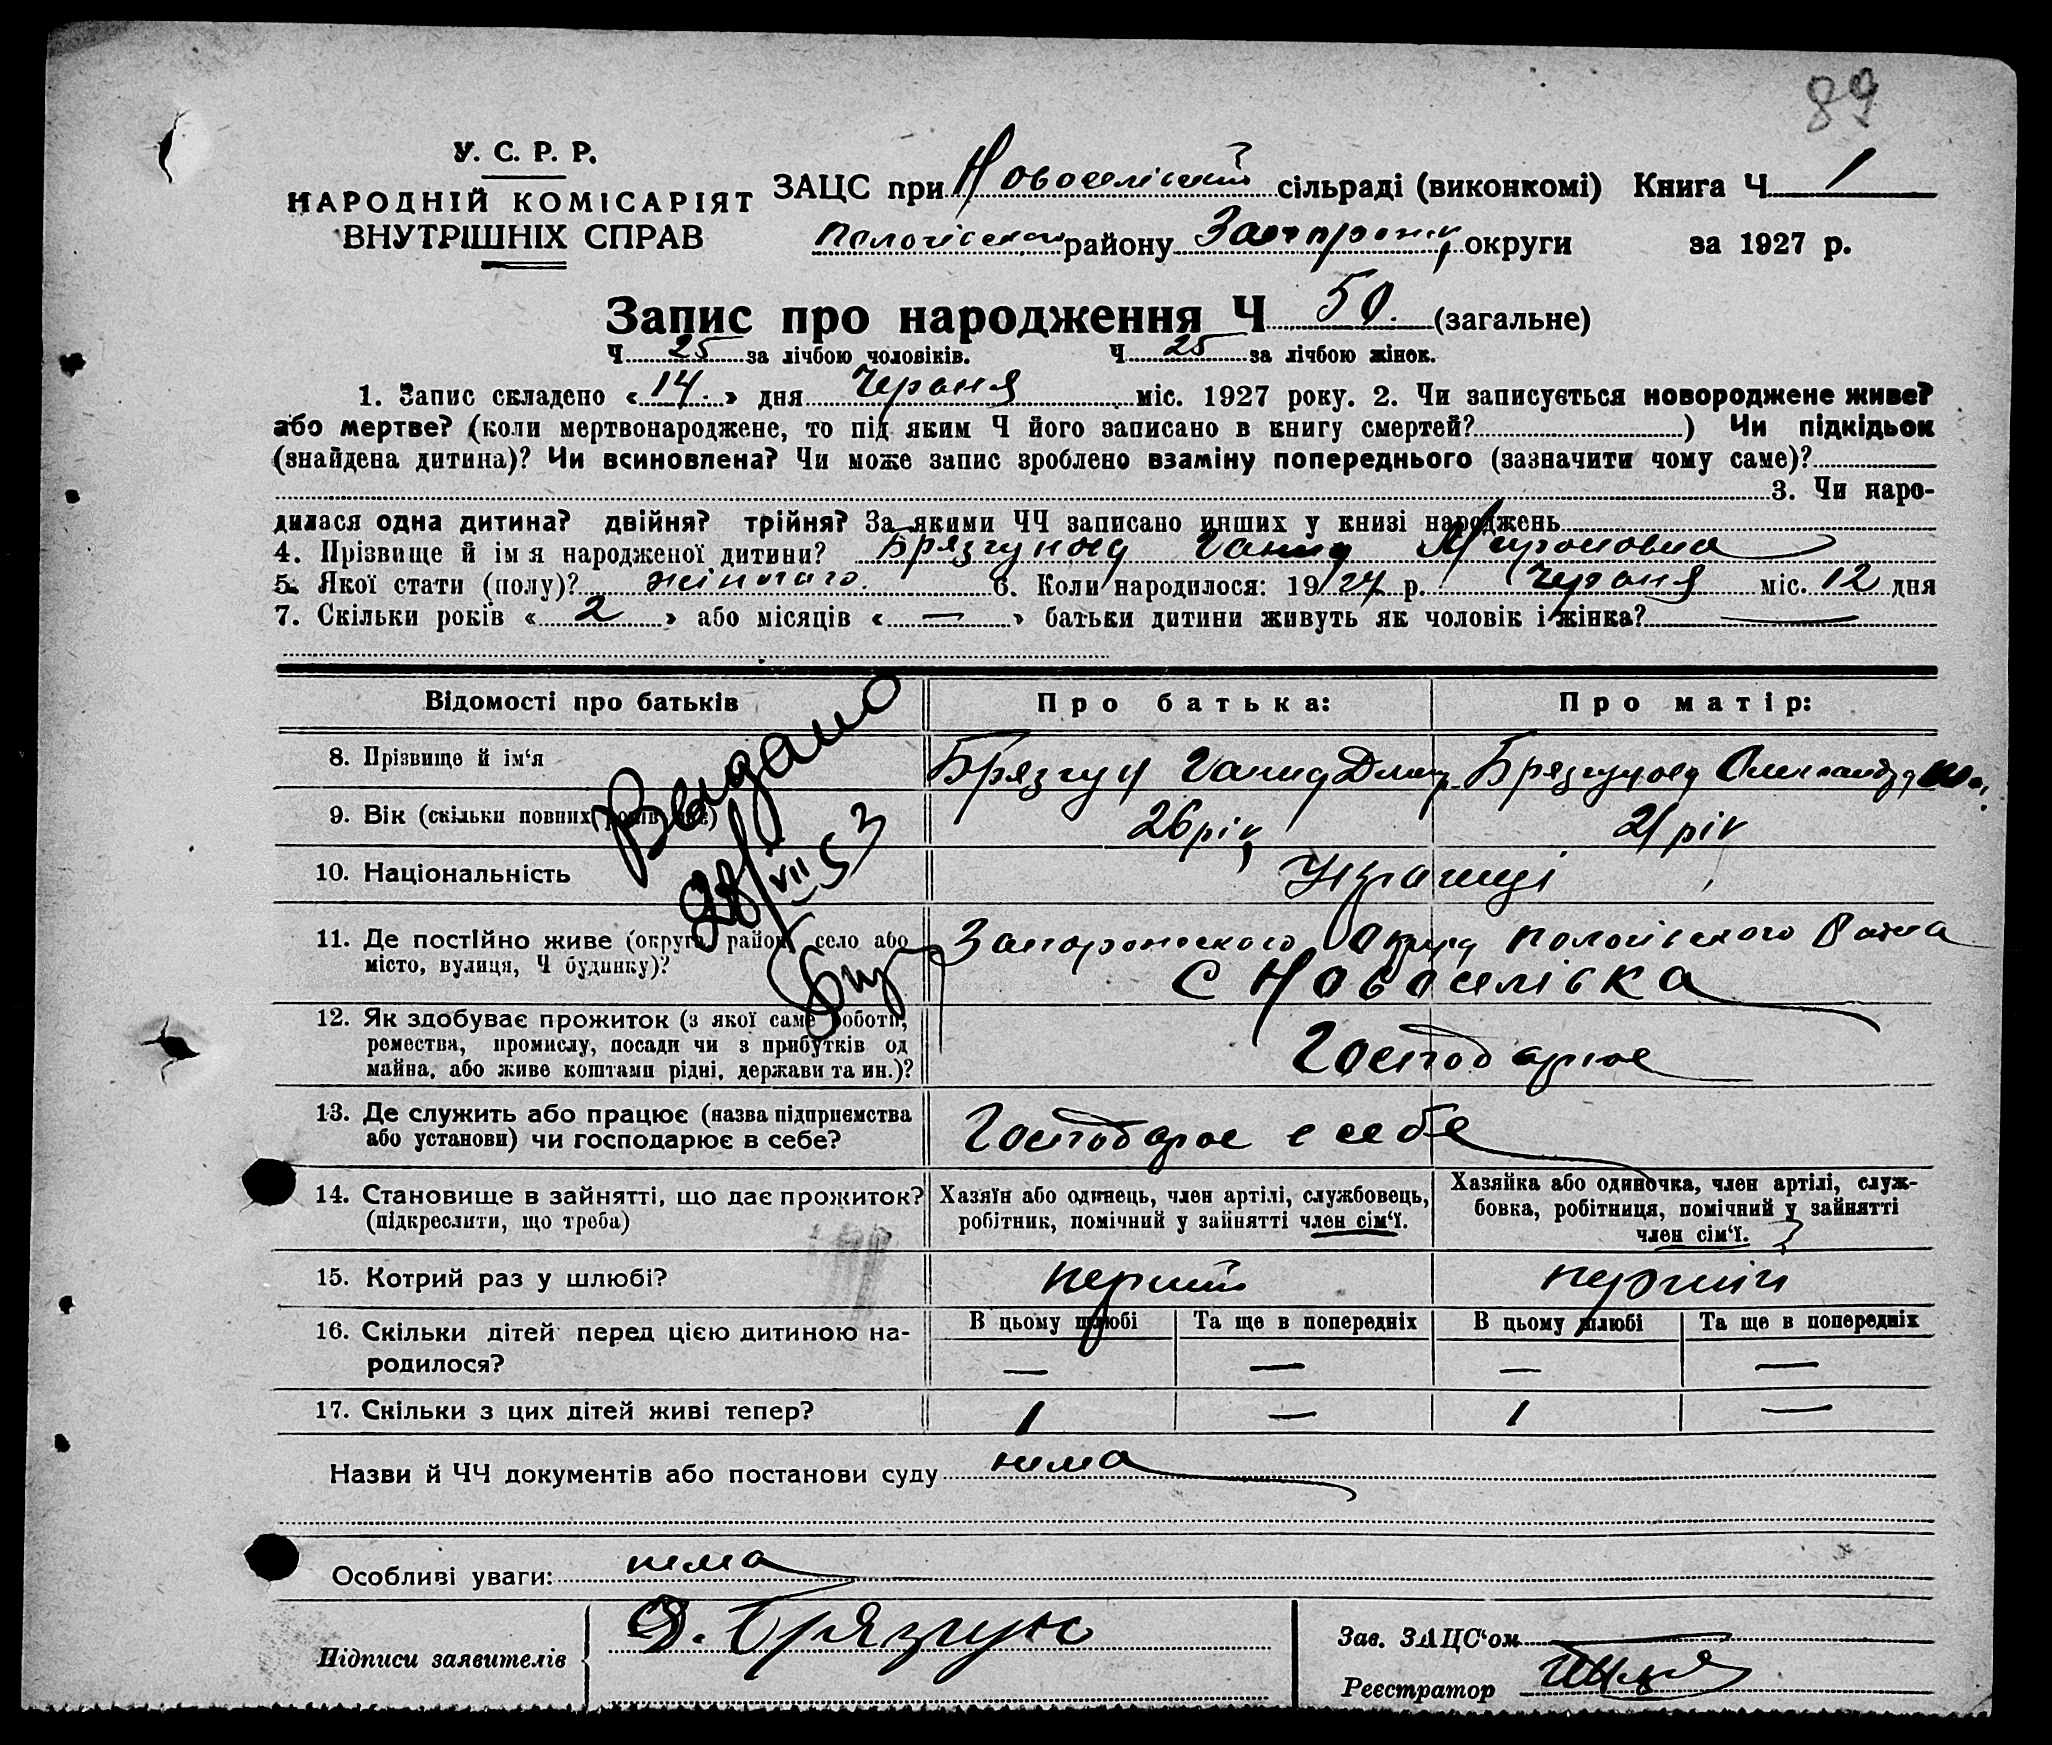 89
У. С. Р. Р.
НАРОДНІЙ КОМІСАРІЯТ
ВНУТРІШНІХ СПРАВ
ЗАЦС при Новоселівській сільраді (виконкомі) Книга Ч 1
району округи за 1927 р.
Запис про народження Ч 50. (загальне)
Ч 25 за лічбою чоловіків. Ч 25 за лічбою жінок.
1. Запис складено «14.» дня Червня міс. 1927 року. 2. Чи записується новороджене живе?
або мертве? (коли мертвонароджене, то під яким Ч його записано в книгу смертей? ) Чи підкідьок
(знайдена дитина)? Чи всиновлена? Чи може запис зроблено взаміну попереднього (зазначити чому саме)?
3. Чи наро-
дилася одна дитина? двійня? трійня? За якими ЧЧ записано инших у книзі народжень
4. Прізвище й ім я народженої дитини? Брязгунова
5. Якої стати (полу)? жіночого. 6. Коли народилося: 1927 р. Червня міс. 12 дня
7. Скільки років «2» або місяців «—» батьки дитини живуть як чоловік і жінка? —
Відомості про батьків
Про батька:
Про матір:
8. Прізвище й ім‘я Брязгун Брязгунова
9. Вік (скільки повних років має) 26 рік 21 рік
10. Національність Українці
11. Де постійно живе (округа, район, село або
місто, вулиця, Ч будинку)?
с Новоселівка
12. Як здобуває прожиток (з якої саме роботи,
ремества, промислу, посади чи з прибутків од
майна, або живе коштами рідні, держави та ин.)?
Господарює
13. Де служить або працює (назва підприємства
або установи) чи господарює в себе?
Господарює в себе
14. Становище в зайнятті, що дає прожиток?
(підкреслити, що треба)
Хазяїн або одинець, член артілі, службовець,
робітник, помічний у зайнятті член сім‘ї.
Хазяйка або одиночка, член артілі, служ-
бовка, робітниця, помічний у зайнятті
член сім‘ї.
15. Котрий раз у шлюбі? перший перший
16. Скільки дітей перед цією дитиною на-
родилося?
В цьому шлюбі Та ще в попередніх В цьому шлюбі Та ще в попередніх
— — — —
17. Скільки з цих дітей живі тепер? 1 — 1 —
Видано
28/VII 53
Назви й ЧЧ документів або постанови суду нема
Особливі уваги: нема
Підписи заявителів
Д. Брязгун
Зав. ЗАЦС‘ом
Реєстратор